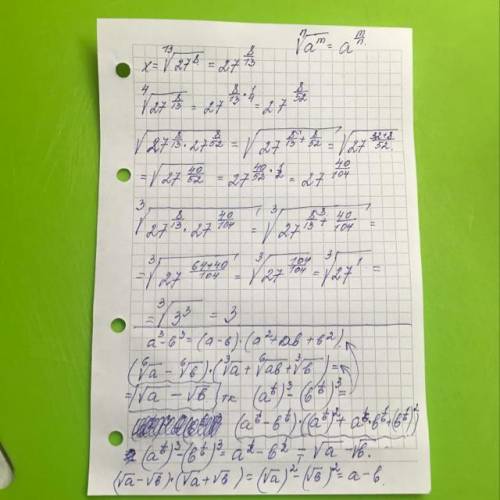 ⁿ√aᵐ = a^(m/n)
x = ¹³√27⁸ = 27^(8/13)
⁴√27^(8/13) = 27^(8/13 · 1/4) = 27^(8/52)
√(27^(8/13) · 27^(8/52)) = √27^(8/13 + 8/52) = √27^((32+8)/52)
= √27^(40/52) = 27^(40/52 · 1/2) = 27^(40/104)
³√(27^(8/13) · 27^(40/104)) = ³√27^(8/13 + 40/104) =
= ³√27^((64+40)/104) = ³√27^(104/104) = ³√27¹ =
= ³√3³ = 3
a³-b³ = (a-b)·(a²+ab+b²)
(⁶√a - ⁶√b)·(³√a + ⁶√ab + ³√b) =
= √a - √b, тк (a^(1/6))³ - (b^(1/6))³ =
(a^(1/6) - b^(1/6))·((a^(1/6))² + a^(1/6)·b^(1/6) + (b^(1/6))²)
(a^(1/6))³ - (b^(1/6))³ = a^(1/2) - b^(1/2) = √a - √b.
(√a-√b)·(√a+√b) = (√a)² - (√b)² = a - b.